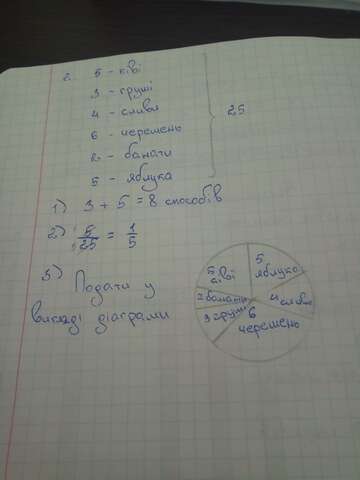 2. 5 - ківі
3 - груші
4 - слива
6 - черешень
2 - банани
5 - яблука
25
1) 3 + 5 = 8 способів
2) 5/25 = 1/5
3) Подати у
вигляді діаграми
5 ківі
5 яблуко
2 банани
4 сливи
3 груші
6 черешень